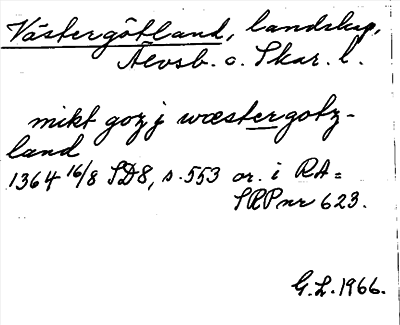 Västergötland, landskap,
Älvsb. o. Skar. l.
mikt goz j wæstergotz-
land
1364 16/8 SD8, s. 553 or. i RA =
SRP nr 623.
G.L. 1966.